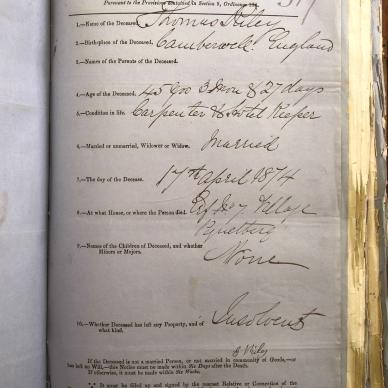 Pursuant to the Provisions contained in Section 9, Ordinance 104.
1.—Name of the Deceased. Thomas Riley
2.—Birthplace of the Deceased. Camberwell England
3.—Names of the Parents of the Deceased.
4.—Age of the Deceased. 45 years 3 Mon & 27 days
5.—Condition in life. Carpenter & Hotel Keeper
6.—Married or unmarried, Widower or Widow. Married
7.—The day of the Decease. 17th April 1874
8.—At what House, or where the Person died.
9.—Names of the Children of Deceased, and whether
Minors or Majors. None
10.—Whether Deceased has left any Property, and of
what kind. Insolvent
Riley
If the Deceased is not a married Person, or not married in community of Goods,—or
has left no Will,—this Notice must be made within Six Days after the Death.
If otherwise, it must be made within Six Weeks.
It must be filled up and signed by the nearest Relative or Connection of the